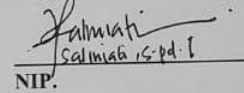 Salmiati
Salmiati, S.pd.I
NIP.